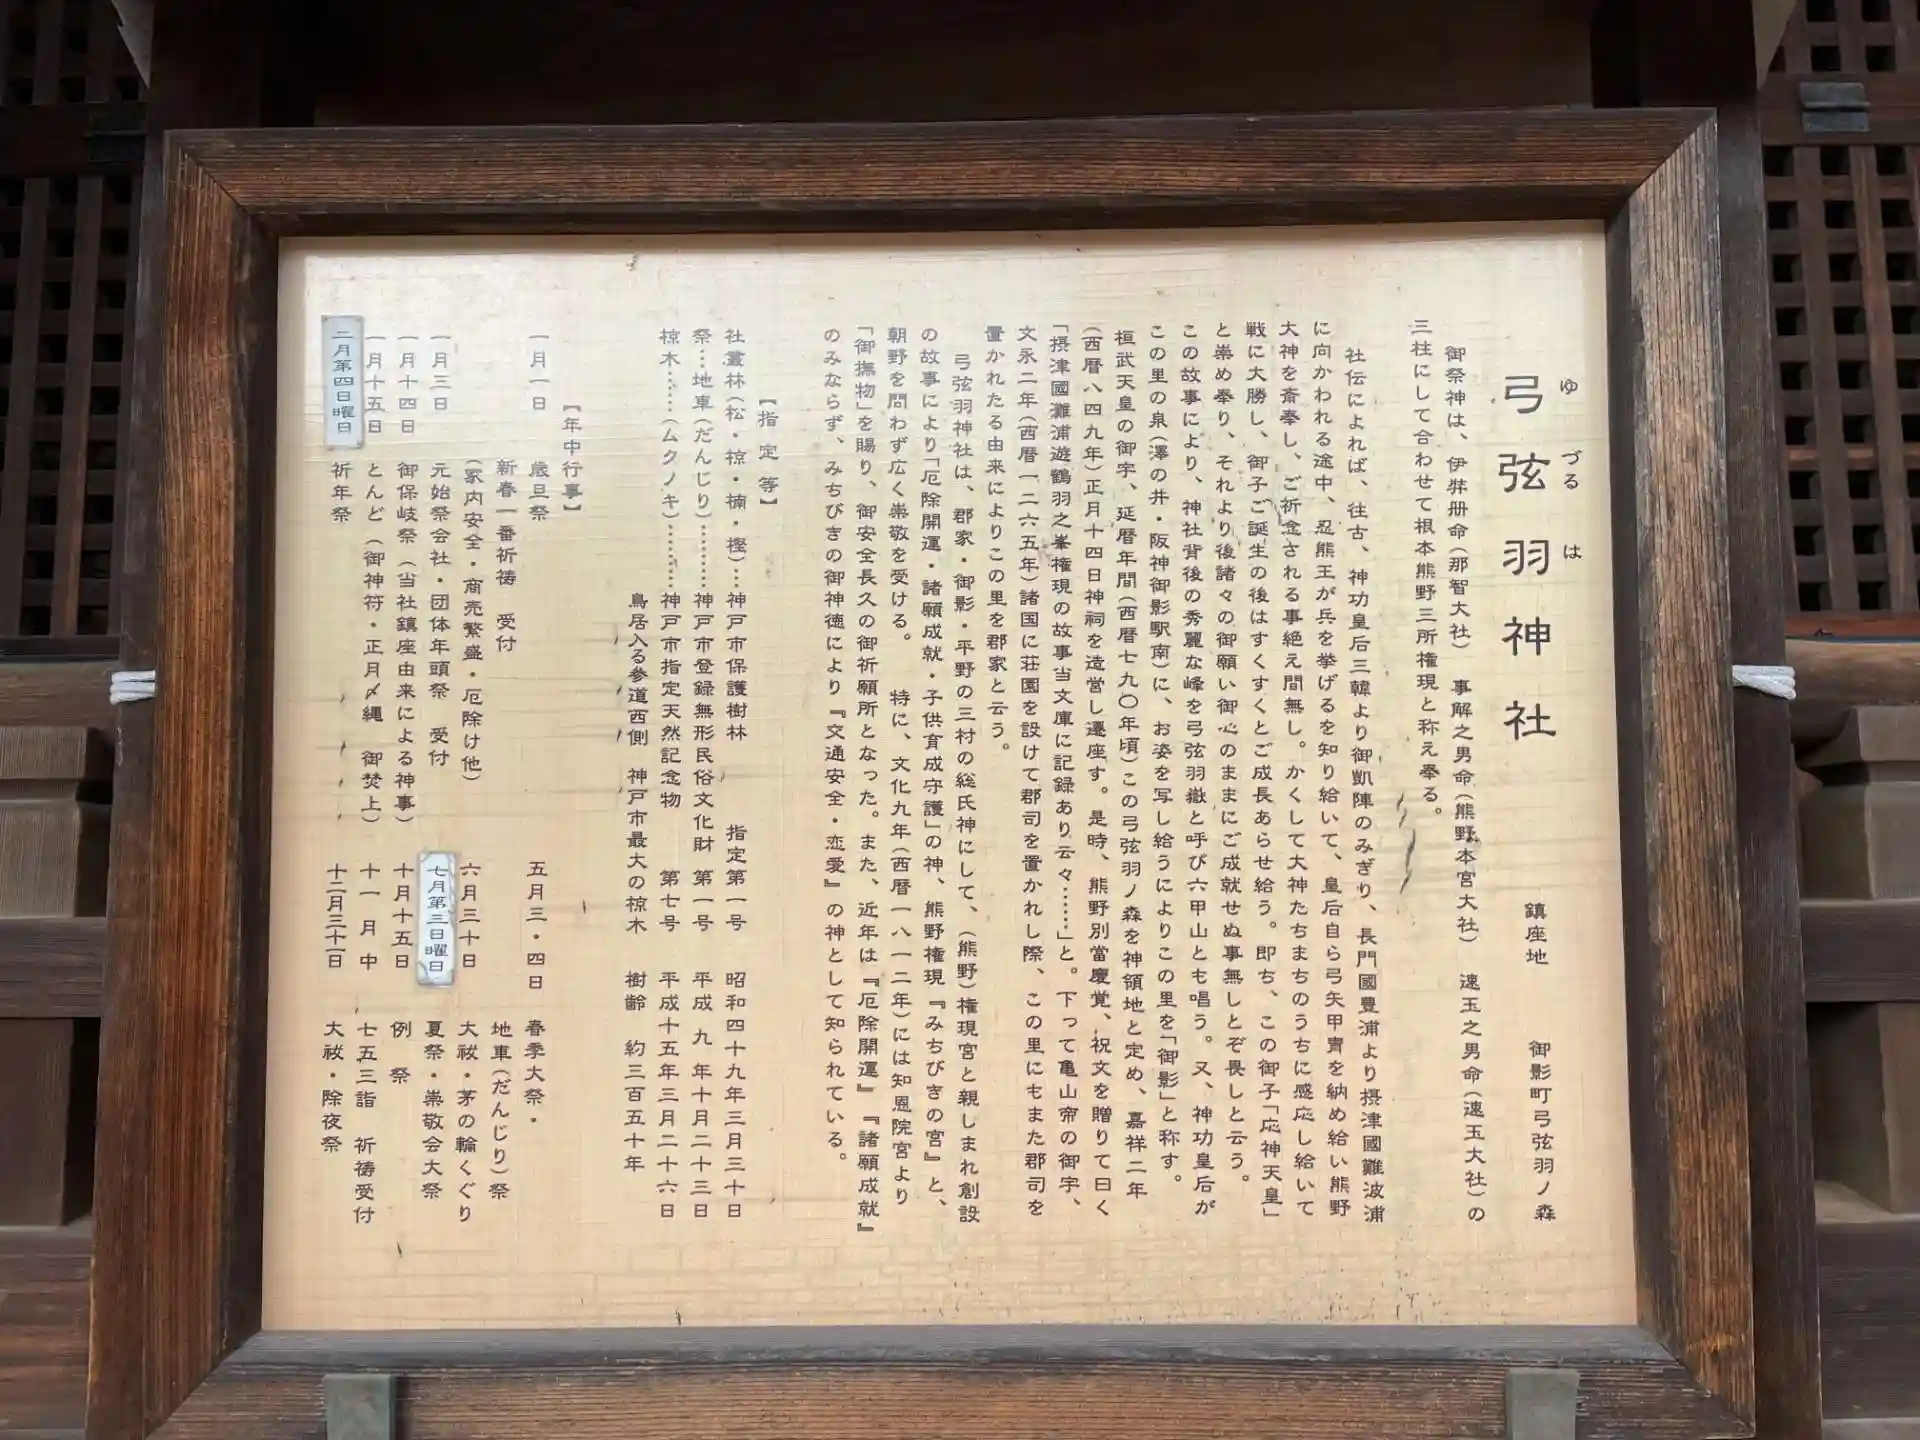 弓弦羽神社
ゆづるは
鎮座地 御影町弓弦羽ノ森
御祭神は、伊弉册命(那智大社) 事解之男命(熊野本宮大社) 速玉之男命(速玉大社)の
三柱にして合わせて根本熊野三所権現と称え奉る。
社伝によれば、往古、神功皇后三韓より御凱陣のみぎり、長門國豊浦より摂津國難波浦
に向かわれる途中、忍熊王が兵を挙げるを知り給いて、皇后自ら弓矢甲冑を納め給い熊野
大神を斎奉し、ご祈念される事絶え間無し。かくして大神たちまちのうちに感応し給いて
戦に大勝し、御子ご誕生の後はすくすくとご成長あらせ給う。即ち、この御子「応神天皇」
と崇め奉り、それより後諸々の御願い御心のままにご成就せぬ事無しとぞ畏しと云う。
この故事により、神社背後の秀麗な峰を弓弦羽嶽と呼び六甲山とも唱う。又、神功皇后が
この里の泉(澤の井・阪神御影駅南)に、お姿を写し給うによりこの里を「御影」と称す。
桓武天皇の御宇、延暦年間(西暦七九〇年頃)この弓弦羽ノ森を神領地と定め、嘉祥二年
(西暦八四九年)正月十四日神祠を造営し遷座す。是時、熊野別當慶覚、祝文を贈りて曰く
「摂津國灘浦遊鶴羽之峯権現の故事当文庫に記録あり云々……」と。下って亀山帝の御宇、
文永二年(西暦一二六五年)諸国に荘園を設けて郡司を置かれし際、この里にもまた郡司を
置かれたる由来によりこの里を郡家と云う。
弓弦羽神社は、郡家・御影・平野の三村の総氏神にして、(熊野)権現宮と親しまれ創設
の故事により「厄除開運・諸願成就・子供育成守護」の神、熊野権現『みちびきの宮』と、
朝野を問わず広く崇敬を受ける。 特に、文化九年(西暦一八一二年)には知恩院宮より
「御撫物」を賜り、御安全長久の御祈願所となった。また、近年は『厄除開運』『諸願成就』
のみならず、みちびきの御神徳により『交通安全・恋愛』の神として知られている。
【指定等】
社叢林(松・椋・楠・樫)…神戸市保護樹林 指定第一号 昭和四十九年三月三十日
祭…地車(だんじり)………神戸市登録無形民俗文化財 第一号 平成 九 年十月二十三日
椋木……(ムクノキ)………神戸市指定天然記念物 第七号 平成十五年三月二十六日
鳥居入る参道西側 神戸市最大の椋木 樹齢 約三百五十年
【年中行事】
一月一日 歳旦祭
新春一番祈祷 受付
(家内安全・商売繁盛・厄除け他)
一月三日 元始祭会社・団体年頭祭 受付
一月十四日 御保岐祭(当社鎮座由来による神事)
一月十五日 とんど(御神符・正月〆縄 御焚上)
二月第四日曜日 祈年祭
五月三・四日 春季大祭・
地車(だんじり)祭
六月三十日 大祓・茅の輪くぐり
七月第三日曜日 夏祭・崇敬会大祭
十月十五日 例 祭
十一月中 七五三詣 祈祷受付
十二月三十一日 大祓・除夜祭